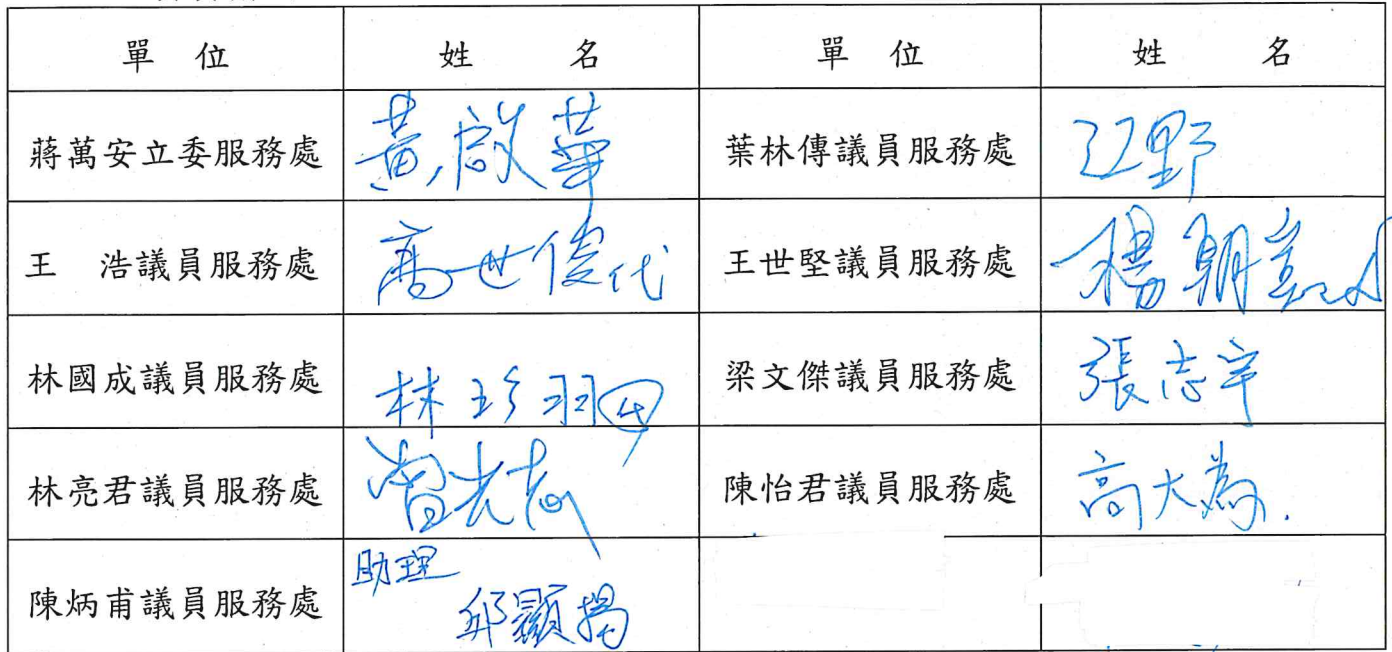 單 位 姓 名 單 位 姓 名
蔣萬安立委服務處 黃啟華 葉林傳議員服務處 江野
王 浩議員服務處 高世俊代 王世堅議員服務處 楊朝
林國成議員服務處 林珍羽代 梁文傑議員服務處 張志宇
林亮君議員服務處 陳怡君議員服務處 高大為.
助理
陳炳甫議員服務處 邱顯